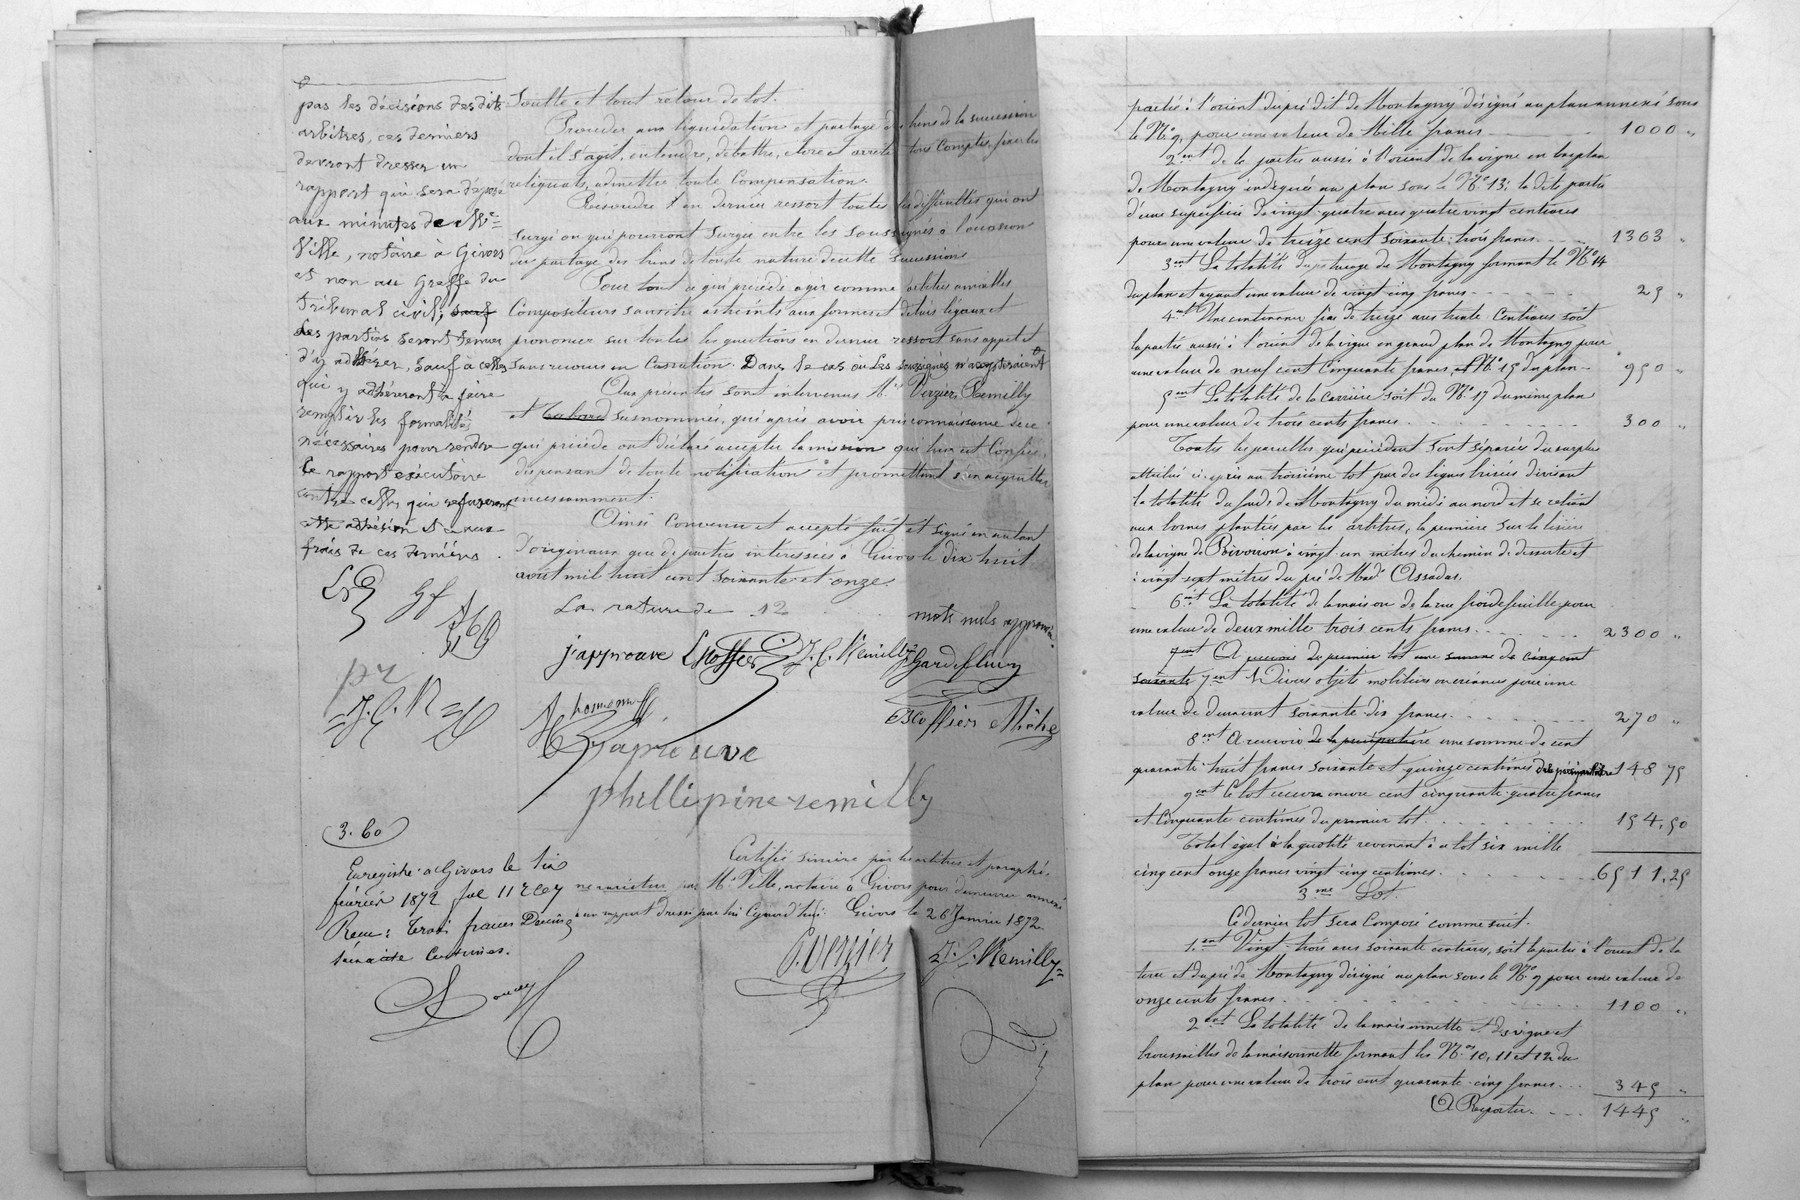 pas les décisions des dits
arbitres, ces derniers
devront dresser un
rapport qui sera déposé
aux minutes de Me
Ville, notaire à Givors
et non au Greffe du
tribunal civil; sauf
les parties seront tenues
d'y adhérer, sauf à celles
qui y adhéreront à faire
remplir les formalités
nécessaires pour rendre
le rapport exécutoire
contre celles qui refuseront
adhésion et aux
frais de ces dernières.
Soulte et tout retour de lot.
Procéder aux liquidation et partage des biens de la succession
dont il s'agit, entendre, débattre, clore et arrêter tous comptes, fixer les
reliquats, admettre toute compensation.
Résoudre en dernier ressort toutes les difficultés qui ont
surgi ou qui pourront surgir entre les soussignés à l'occasion
du partage des biens de toute nature de cette succession
Pour tout ce qui précède agir comme arbitres amiables
Compositeurs sans être astreints aux formes et délais légaux et
prononcer sur toutes les questions en dernier ressort sans appel et
sans recours en Cassation. Dans le cas où les soussignés n'accepteraient
Aux présentes sont intervenus Mrs Verzier, Remilly
et susnommés, qui après avoir pris connaissance de ce
qui précède ont déclaré accepter la mission qui leur est Confiée,
dispensant de toute notification et promettant s'en acquitter
incessamment.
Ainsi Convenu et accepté fait et signé en autant
d'originaux que de parties intéressées à Givors le dix huit
août mil huit cent soixante et onze.
La rature de 12 mots nuls approuvé.
j'approuve Escoffier J. C. Remilly Gardefleury
Escoffier
J'aprouve
phillipine remilly
J. C. R
3.60
Enregistré à Givors le six
février 1872 fol 11
Reçu: trois francs
soixante Centimes.
Certifié sincère par les arbitres et paraphé
ne varietur par Me Ville, notaire à Givors pour demeurer annexé
à un rapport dressé par lui Cejourd'hui. Givors le 26 Janvier 1872.
P. Verzier J. C. Remilly
partie à l'orient du pré dit de Montagny désigné au plan annexé sous
le No 9, pour une valeur de Mille francs 1000 "
2ent de la partie aussi à l'orient de la vigne en bas plan
de Montagny indiquée au plan sous le No 13; la dite partie
d'une superficie de vingt-quatre ares quatre vingt centiares
pour une valeur de treize cent soixante-trois francs 1363 "
3ent La totalité du pâturage de Montagny formant le No 14
du plan et ayant une valeur de vingt-cinq francs 25 "
4ent Une contenance fixe de treize ares trente Centiares soit
la partie aussi à l'orient de la vigne en grand plan de Montagny pour
une valeur de neuf cent Cinquante francs, No 15 du plan 950 "
5ent La totalité de la carrière soit du No 17 du même plan
pour une valeur de trois cents francs 300 "
Toutes les parcelles qui précèdent sont séparées du surplus
attribué ci-après au troisième lot par des lignes brisées divisant
la totalité du fonds de Montagny du midi au nord et se reliant
aux bornes plantées par les arbitres, la première sur la lisière
de la vigne de Poivorion à vingt-un mètres du chemin de desserte et
à vingt-sept mètres du pré de Made Assadas.
6ent La totalité de la maison de la rue froidefeuille pour
une valeur de deux mille trois cents francs 2300 "
7ent A recevoir du premier lot une somme de cinq cent
soixante 7ent Divers objets mobiliers ou créances pour une
valeur de deux cent soixante-dix francs 270 "
8ent A recevoir de la précipitaire une somme de cent
quarante-huit francs soixante et quinze centimes de la précipitaire 148 75
9ent Ce lot recevra encore cent cinquante-quatre francs
et Cinquante centimes du premier lot 154,50
Total égal à la quotité revenant à ce lot six mille
cinq cent onze francs vingt-cinq centimes. 6511,25
3me Lot.
Ce dernier lot sera Composé comme suit:
1.ent Vingt-trois ares soixante centiares, soit la partie à l'orient de la
terre et du pré de Montagny désigné au plan sous le No 9 pour une valeur de
onze cents francs 1100 "
2ent La totalité de la maisonnette et des vignes et
broussailles de la maisonnette formant les Nos 10, 11 et 12 du
plan pour une valeur de trois cent quarante-cinq francs 345 "
A Reporter 1445 "